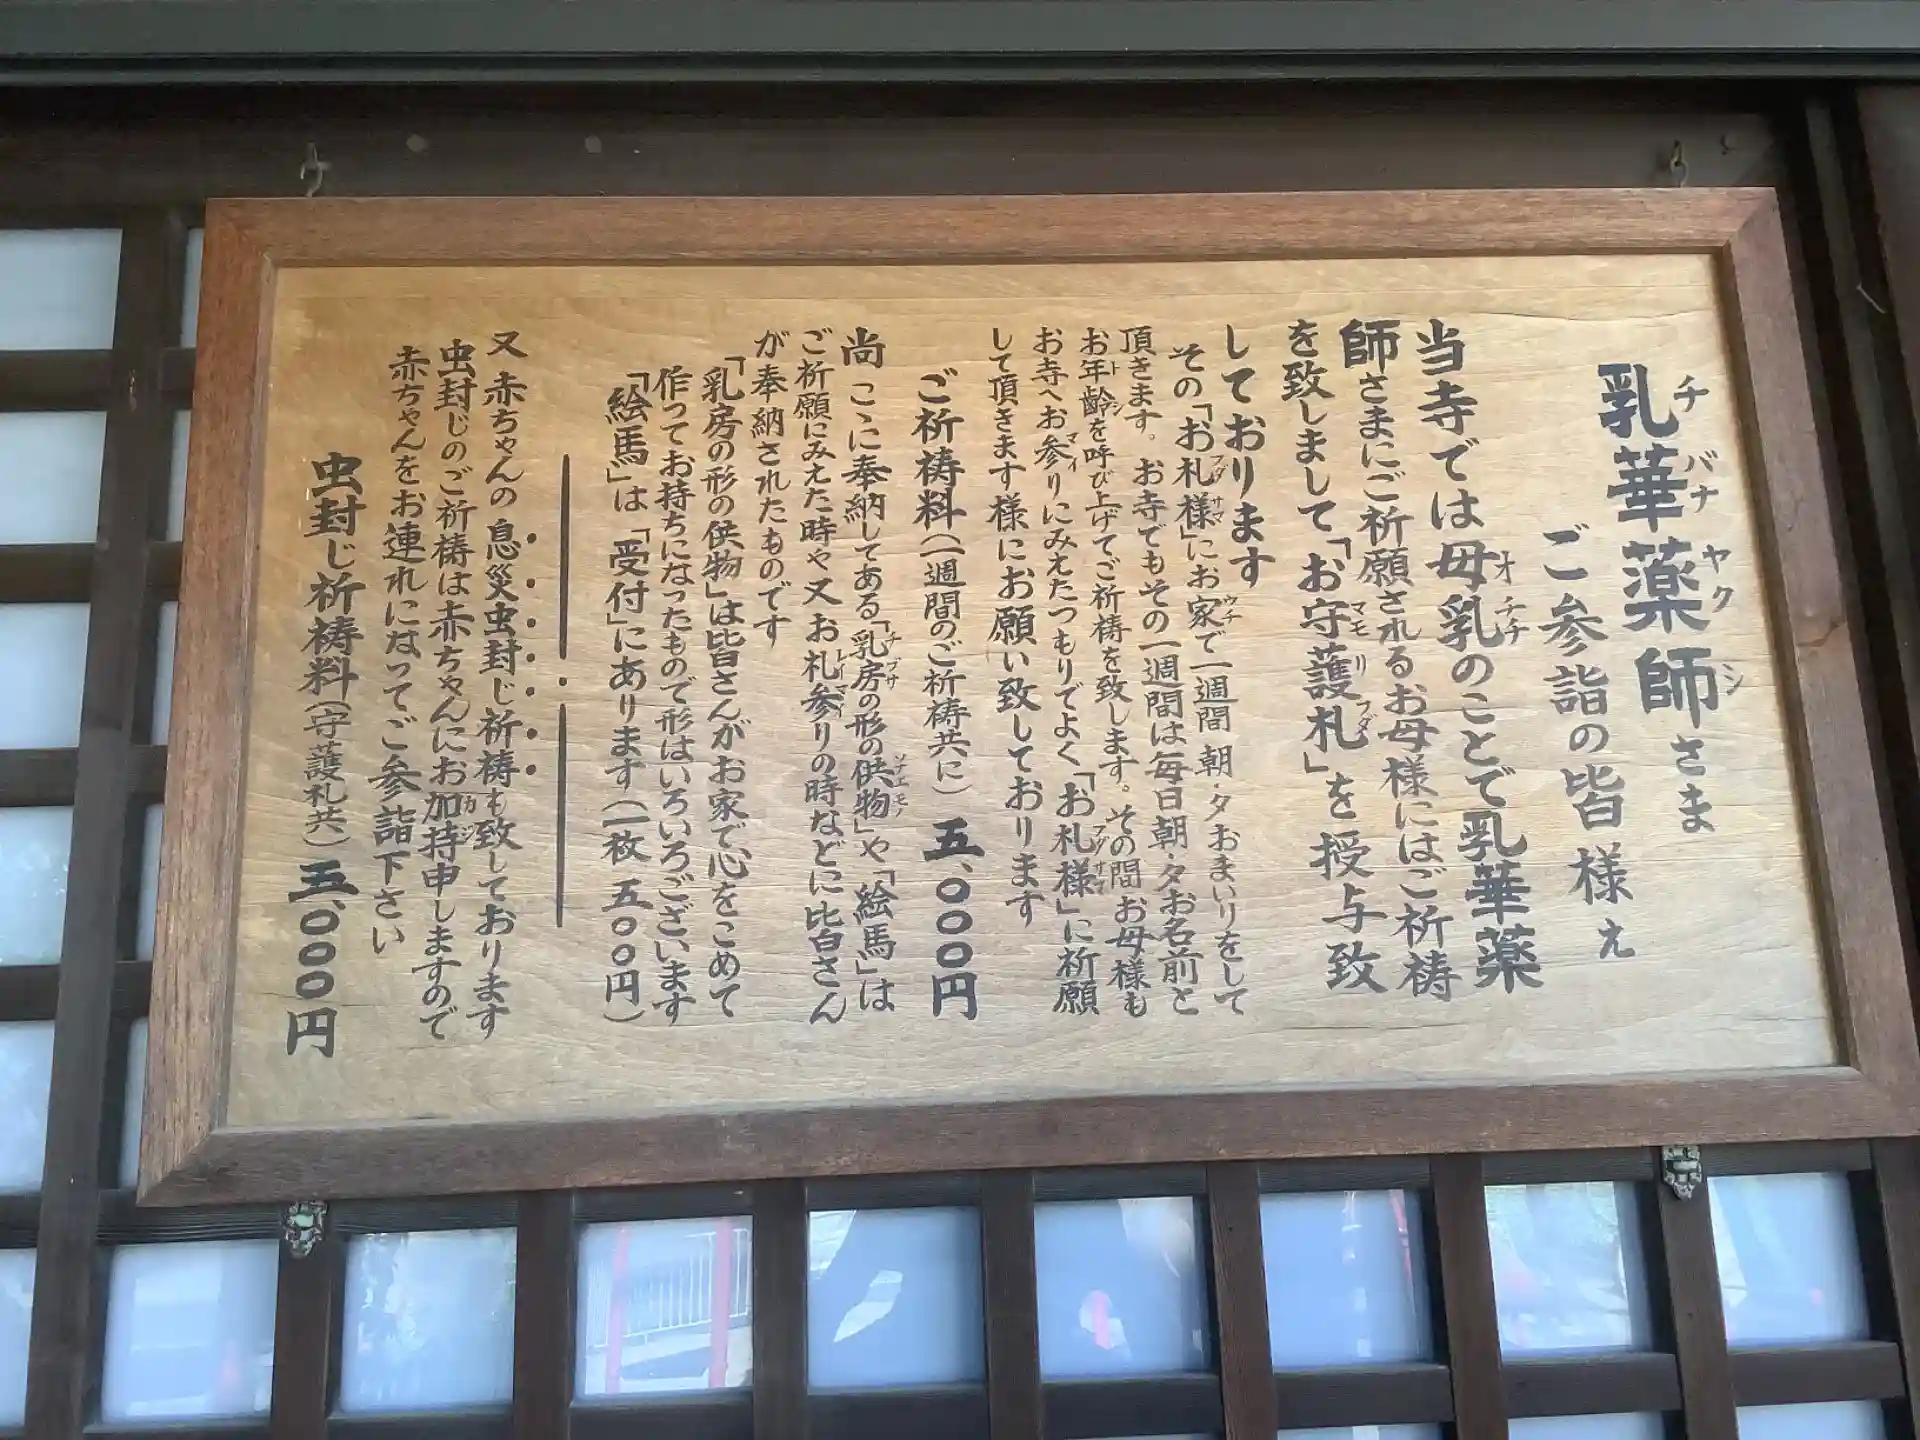 乳華薬師さま
チバナヤクシ
ご参詣の皆様え
当寺では母乳のことで乳華薬
オチチ
師さまにご祈願されるお母様にはご祈祷
を致しまして「お守護札」を授与致
マモリフダ
しております
その「お札様」にお家で一週間朝・夕おまいりをして
フダサマ ウチ
頂きます。お寺でもその一週間は毎日朝・夕お名前と
お年齢を呼び上げてご祈祷を致します。その間お母様も
トシ
お寺へお参りにみえたつもりでよく「お札様」に祈願
マイ フダサマ
して頂きます様にお願い致しております
ご祈祷料(一週間のご祈祷共に)五、〇〇〇円
尚 こゝに奉納してある「乳房の形の供物」や「絵馬」は
チブサ ソナエモノ
ご祈願にみえた時や又お礼参りの時などに皆さん
レイマイ
が奉納されたものです
「乳房の形の供物」は皆さんがお家で心をこめて
作ってお持ちになったもので形はいろいろございます
「絵馬」は「受付」にあります(一枚 五〇〇円)
又 赤ちゃんの息災虫封じ祈祷も致しております
虫封じのご祈祷は赤ちゃんにお加持申しますので
カジ
赤ちゃんをお連れになってご参詣下さい
虫封じ祈祷料(守護札共)五、〇〇〇円